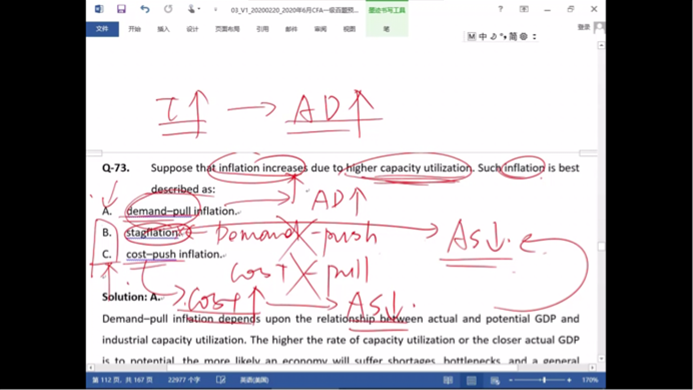 03_V1_20200220_2020年6月CFA一级百题预...
墨迹书写工具
登录
文件 开始 插入 设计 页面布局 引用 邮件 审阅 视图 笔
M 中 简
I↑ → AD↑
Q-73. Suppose that inflation increases due to higher capacity utilization. Such inflation is best
described as:
A. demand–pull inflation. → AD↑
B. stagflation → AS↓.
Demand-push
C. cost–push inflation.
cost-pull
Solution: A. cost↑ → AS↓.
Demand–pull inflation depends upon the relationship between actual and potential GDP and
industrial capacity utilization. The higher the rate of capacity utilization or the closer actual GDP
is to potential, the more likely an economy will suffer shortages, bottlenecks, and a general
第 112 页，共 167 页 22977 个字 英语(美国) 170%